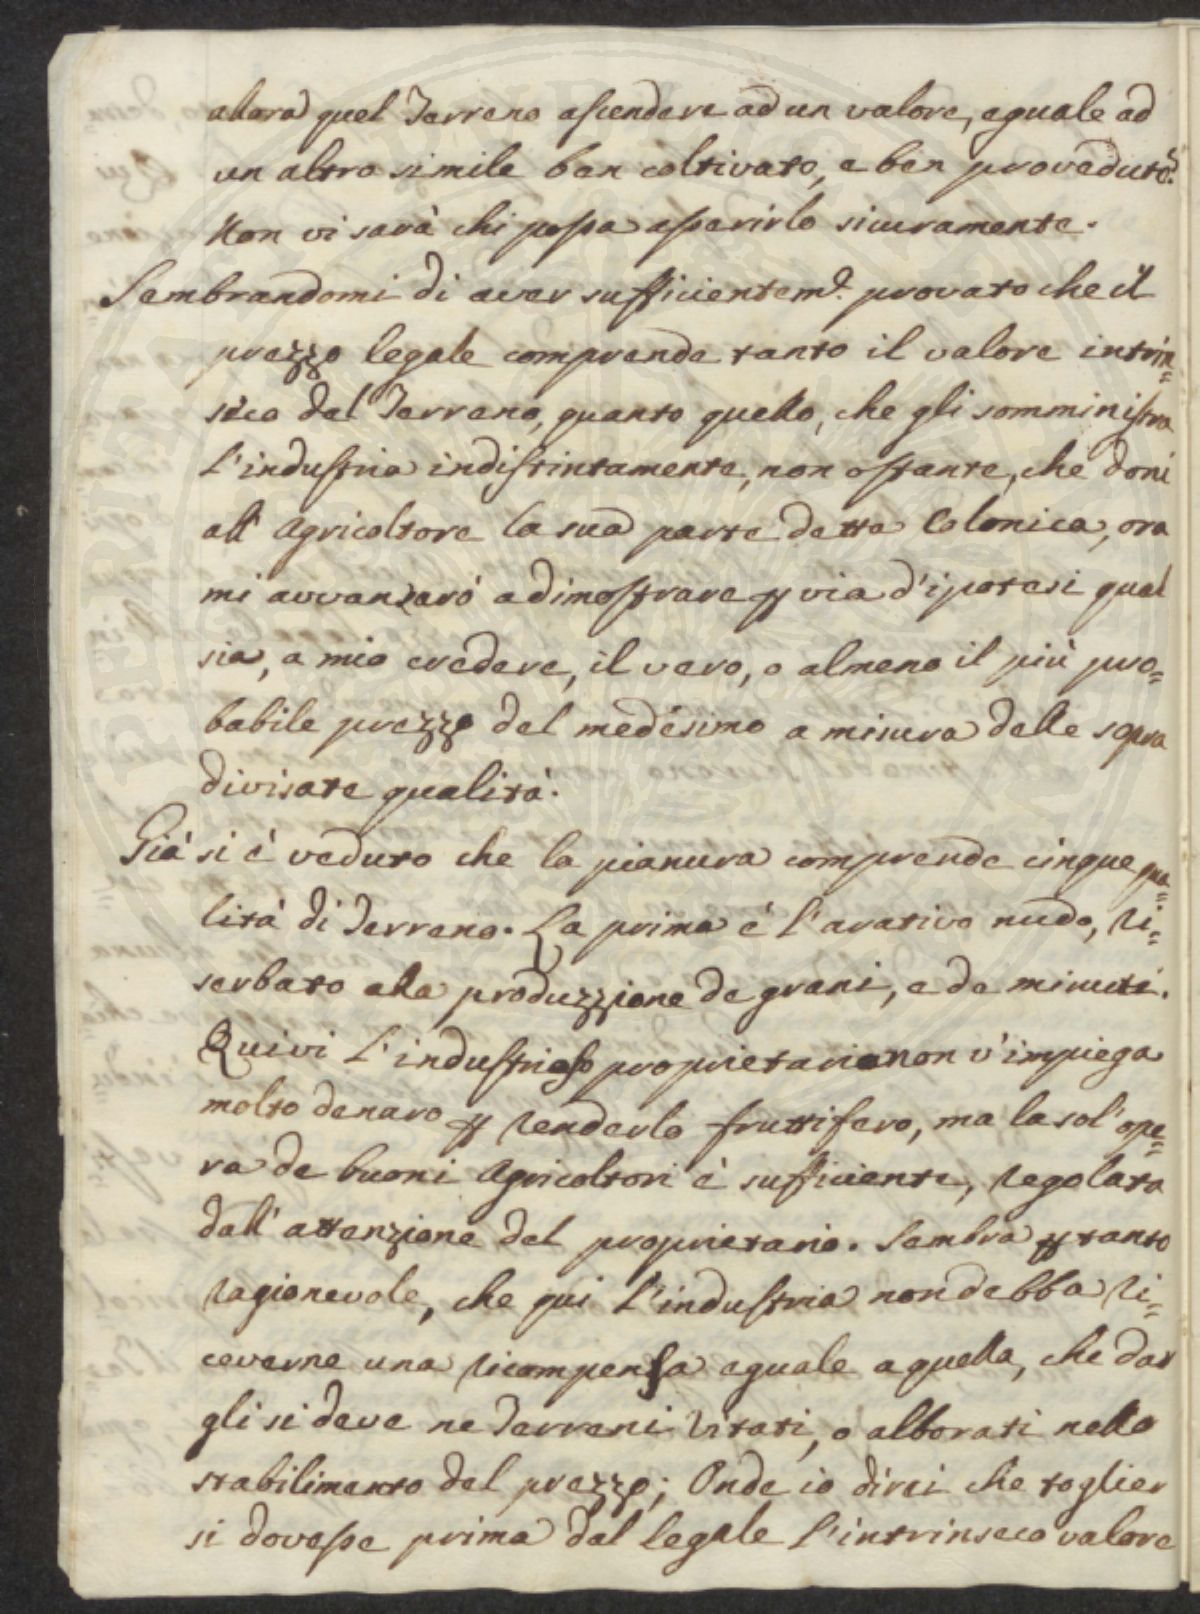 allora quel Terreno ascendere ad un valore, eguale ad
un altro simile ben coltivato, e ben proveduto?
Non vi sarà chi possa asserirlo sicuramente.
Sembrandomi di aver sufficientem.e provato che il
prezzo legale comprende tanto il valore intrin=
sico del Terreno, quanto quello, che gli somministra
l'industria indistintamente, non ostante, che doni
all' Agricoltore la sua parte detta Colonica, ora
mi avvanzarò a dimostrare p via d'ipotesi qual
sia, a mio credere, il vero, o almeno il più pro=
babile prezzo del medesimo a misura delle sopra
divisate qualità.
Già si è veduto che la pianura comprende cinque qua=
lità di Terreno. La prima è l'arativo nudo, ri=
serbato alla produzzione de grani, e de minuti.
Quivi l'industrioso proprietario non v'impiega
molto denaro p renderlo fruttifero, ma la sol'ope=
ra de buoni Agricoltori è sufficiente, regolata
dall'attenzione del proprietario. Sembra p tanto
ragionevole, che qui l'industria non debba ri=
ceverne una ricompensa eguale a quella, che dar
gli si deve ne Terreni Vitati, o alborati nello
stabilimento del prezzo; Onde io direi che toglier
si dovesse prima dal legale l'intrinseco valore